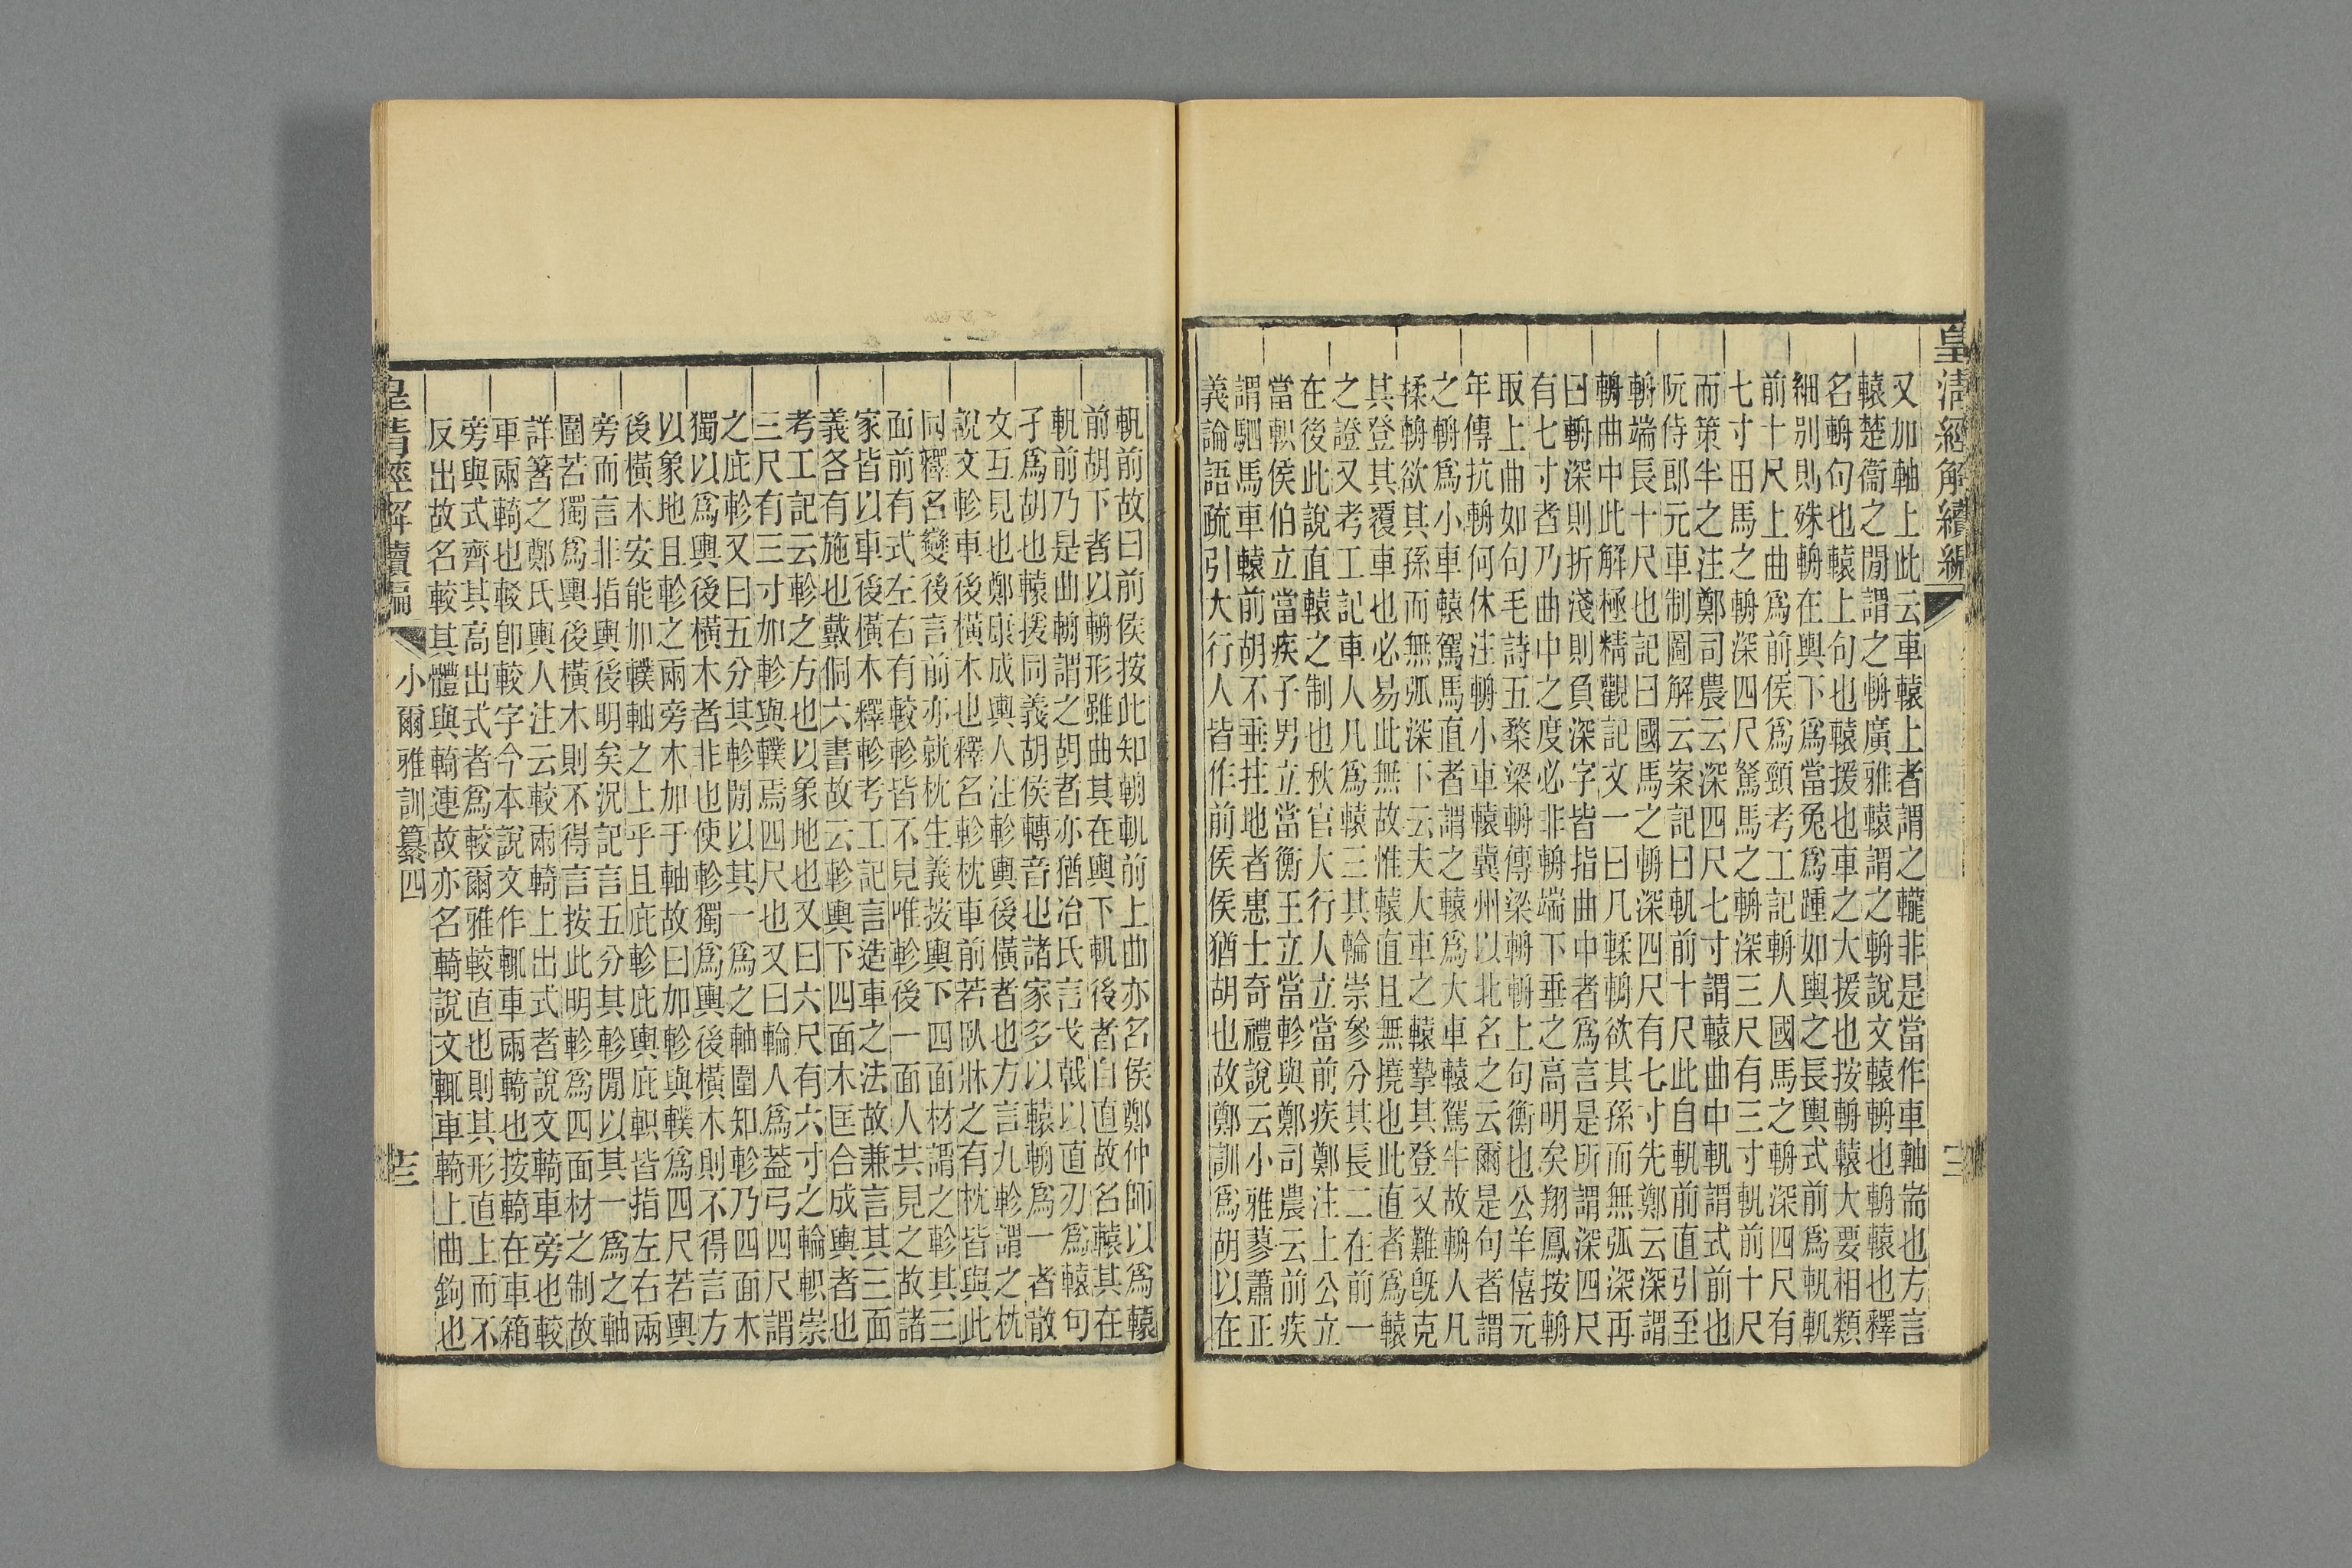 皇清經解續編
又加軸上此云車轅上者謂之䡁非是當作車軸耑也方言
轅楚衞之閒謂之輈廣雅轅謂之輈說文轅輈也輈轅也釋
名輈句也轅上句也轅援也車之大援也按輈轅大要相類
細别則殊輈在輿下爲當兔爲踵如輿之長輿式前爲軓軓
前十尺上曲爲前侯爲頸考工記輈人國馬之輈深四尺有
七寸田馬之輈深四尺駑馬之輈深三尺有三寸軓前十尺
而策半之注鄭司農云深四尺七寸謂轅曲中軓謂式前也
阮侍郎元車制圖解云案記曰軓前十尺此自軓前直引至
輈端長十尺也記曰國馬之輈深四尺有七寸先鄭云深謂
輈曲中此解極精觀記文一曰凡輮輈欲其孫而無弧深再
曰輈深則折淺則負深字皆指曲中者爲言是所謂深四尺
有七寸者乃曲中之度必非輈端下垂之高明矣翔鳳按輈
取上曲如句毛詩五楘梁輈傳梁輈輈上句衡也公羊僖元
年傳抗輈何休注輈小車轅冀州以北名之云爾是句者謂
之輈爲小車轅駕馬直者謂之轅爲大車轅駕牛故輈人凡
揉輈欲其孫而無弧深下云夫大車之轅摯其登又難旣克
其登其覆車也必易此無故惟轅直且無撓也此直者爲轅
之證又考工記車人凡爲轅三其輪崇參分其長二在前一
在後此說直轅之制也秋官大行人立當前疾鄭注上公立
當軹侯伯立當疾子男立當衡王立當軫與鄭司農云前疾
謂駟馬車轅前胡不垂拄地者惠士奇禮說云小雅蓼蕭正
義論語疏引大行人皆作前侯侯猶胡也故鄭訓爲胡以在
軓前故曰前侯按此知輈軓前上曲亦名侯鄭仲師以爲轅
前胡下者以輈形雖曲其在輿下軓後者自直故名轅其在
軓前乃是曲輈謂之胡者亦猶冶氏言戈戟以直刃爲轅句
孑爲胡也轅援同義胡侯轉音也諸家多以轅輈爲一者散
文互見也鄭康成輿人注軫輿後橫者也方言九軫謂之枕
說文軫車後橫木也釋名軫枕車前若臥牀之有枕皆與此
同釋名變後言前亦就枕生義按輿下四面材謂之軫其三
面前有式左右有較軫皆不見唯軫後一面人共見之故諸
家皆以車後橫木釋軫考工記言造車之法故兼言其三面
義各有施也戴侗六書故云軫輿下四面木匡合成輿者也
考工記云軫之方也以象地也又曰六尺有六寸之輪軹崇
三尺有三寸加軫與轐焉四尺也又曰輪人爲蓋弓四尺謂
之庇軫又曰五分其軫閒以其一爲之軸圍知軫乃四面木
獨以爲輿後橫木者非也使軫獨爲輿後橫木則不得言方
以象地且軫之兩旁木加于軸故曰加軫與轐爲四尺若輿
後橫木安能加轐軸之上乎且庇軫庇輿庇軹皆指左右兩
旁而言非指輿後明矣況記言五分其軫閒以其一爲之軸
圍若獨爲輿後橫木則不得言按此明軫爲四面材之制故
詳箸之鄭氏輿人注云較兩輢上出式者說文輢車旁也較
車兩輢也較卽較字今本說文作輒車兩輢也按輢在車箱
旁與式齊其高出式者爲較爾雅較直也則其形直上而不
反出故名較其體與輢連故亦名輢說文輒車輢上曲鉤也
皇清經解續編 小爾雅訓纂四